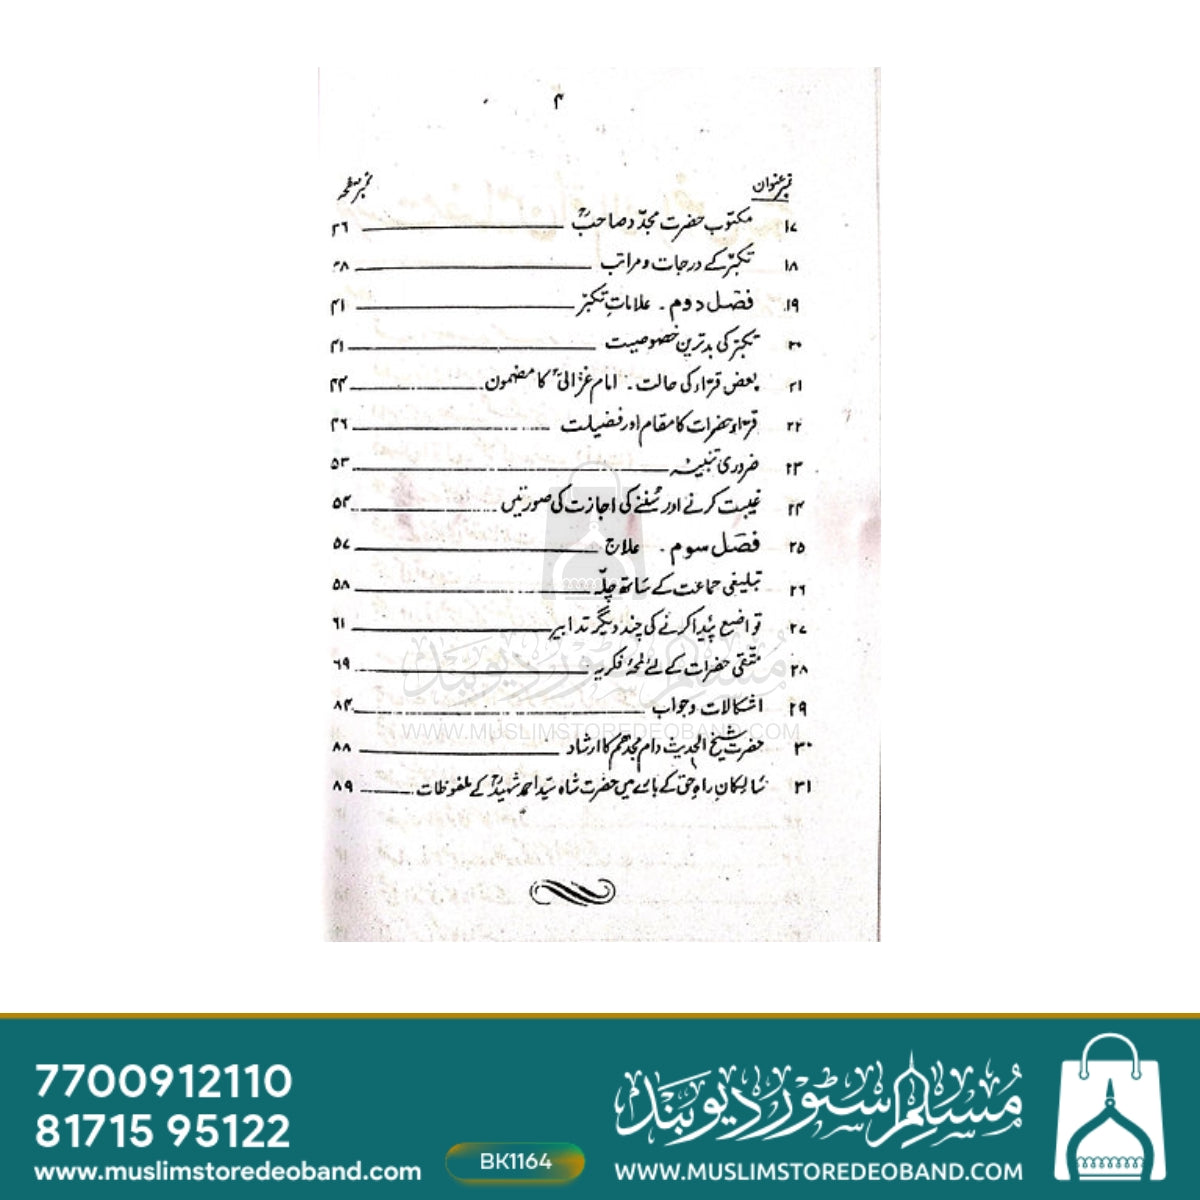 ۴
نمبر عنوان نمبر صفحہ
۱۷ مکتوب حضرت مجدّد صاحبؒ ۳۶
۱۸ تکبّر کے درجات و مراتب ۳۸
۱۹ فصل دوم ۔ علاماتِ تکبّر ۴۱
۲۰ تکبّر کی بدترین خصوصیت ۴۱
۲۱ بعض قرّاء کی حالت ۔ امام غزالیؒ کا مضمون ۴۴
۲۲ قرّاء حضرات کا مقام اور فضیلت ۴۶
۲۳ ضروری تنبیہ ۵۳
۲۴ غیبت کرنے اور سُننے کی اجازت کی صورتیں ۵۴
۲۵ فصل سوم ۔ علاج ۵۷
۲۶ تبلیغی جماعت کے ساتھ چلّہ ۵۸
۲۷ تواضع پیدا کرنے کی چند دیگر تدابیر ۶۱
۲۸ متّقی حضرات کے لئے لمحۂ فکریہ ۶۹
۲۹ اشکالات و جواب ۸۴
۳۰ حضرت شیخ الحدیث دام مجدہم کا ارشاد ۸۸
۳۱ سالکانِ راہِ حق کے بارے میں حضرت شاہ سیّد احمد شہیدؒ کے ملفوظات ۸۹
مُسلم سٹور دیوبند
WWW.MUSLIMSTOREDEOBAND.COM
7700912110
81715 95122
www.muslimstoredeoband.com
BK1164
مُسلم سٹور دیوبند
WWW.MUSLIMSTOREDEOBAND.COM